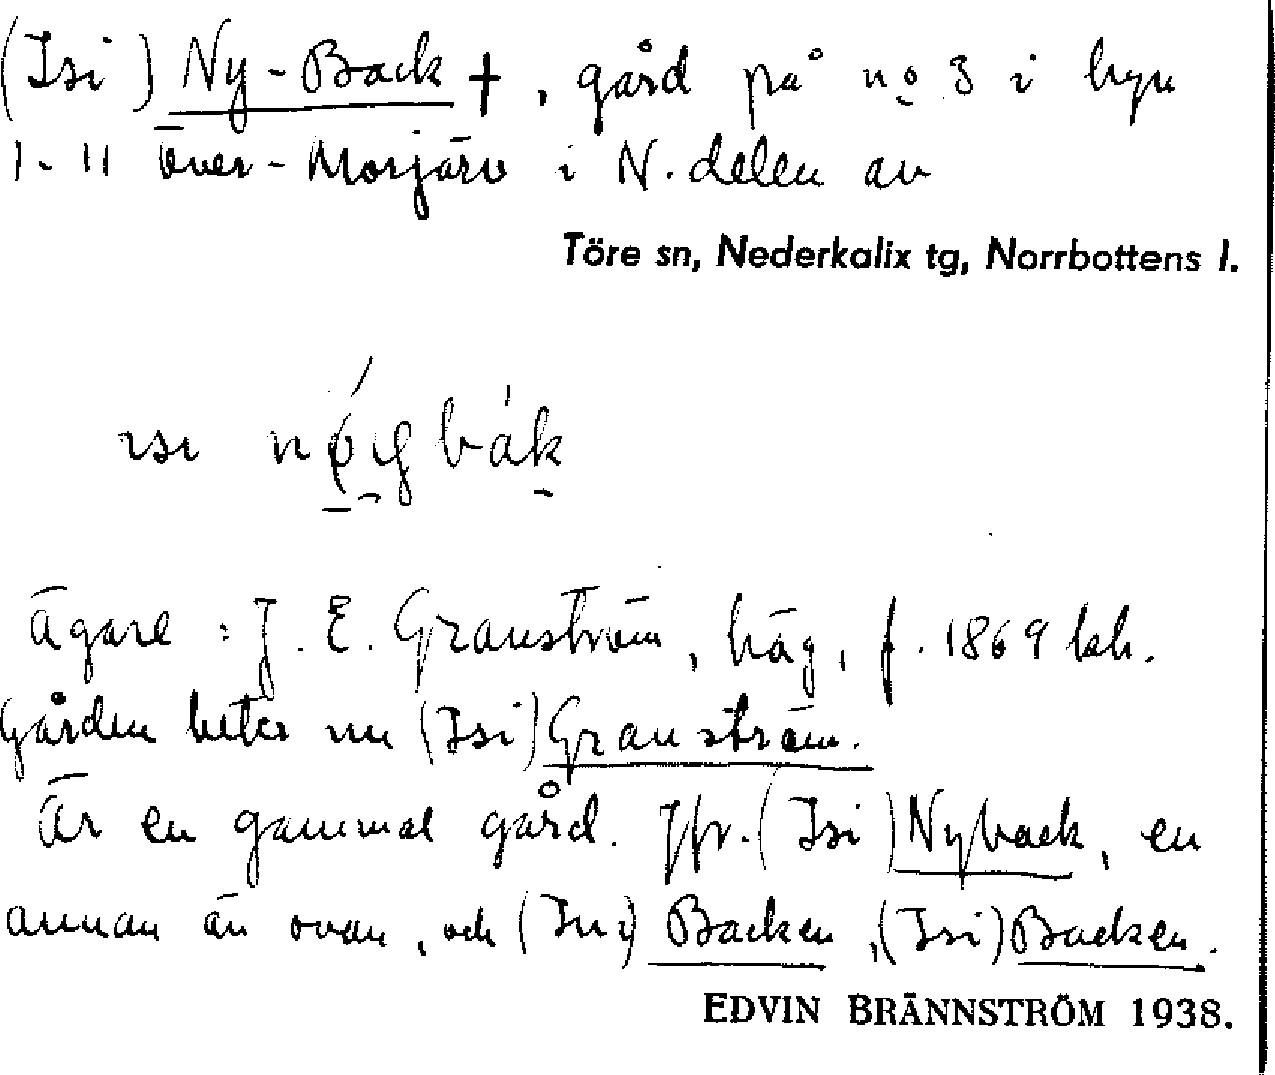 (Isi) Ny-Back †, gård på no 3 i byn
1-11 Över-Morjärv i N. delen av
Töre sn, Nederkalix tg, Norrbottens l.
ısı
Ägare: J. E. Granström, häg, f. 1869 bh.
Gården heter nu (Isi) Granström.
Är en gammal gård. Jfr. (Isi) Nyback, en
annan än ovan, och (Ini) Backen, (Isi) Backen.
EDVIN BRÄNNSTRÖM 1938.